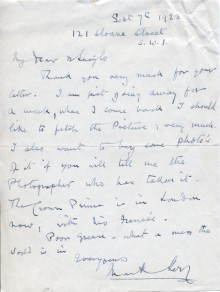 Sept 7th 1922
121 Sloane Street
S.W.1.
My dear
Thank you very much for your
letter. I am not going away for
a week, when I come back I should
like to fetch the Picture, very much
I also want to buy some photo's
of it if you will tell me the
Photographer who has taken it
The Crown Prince is in London
now, with his
Poor Greece - what a mess the
World is in